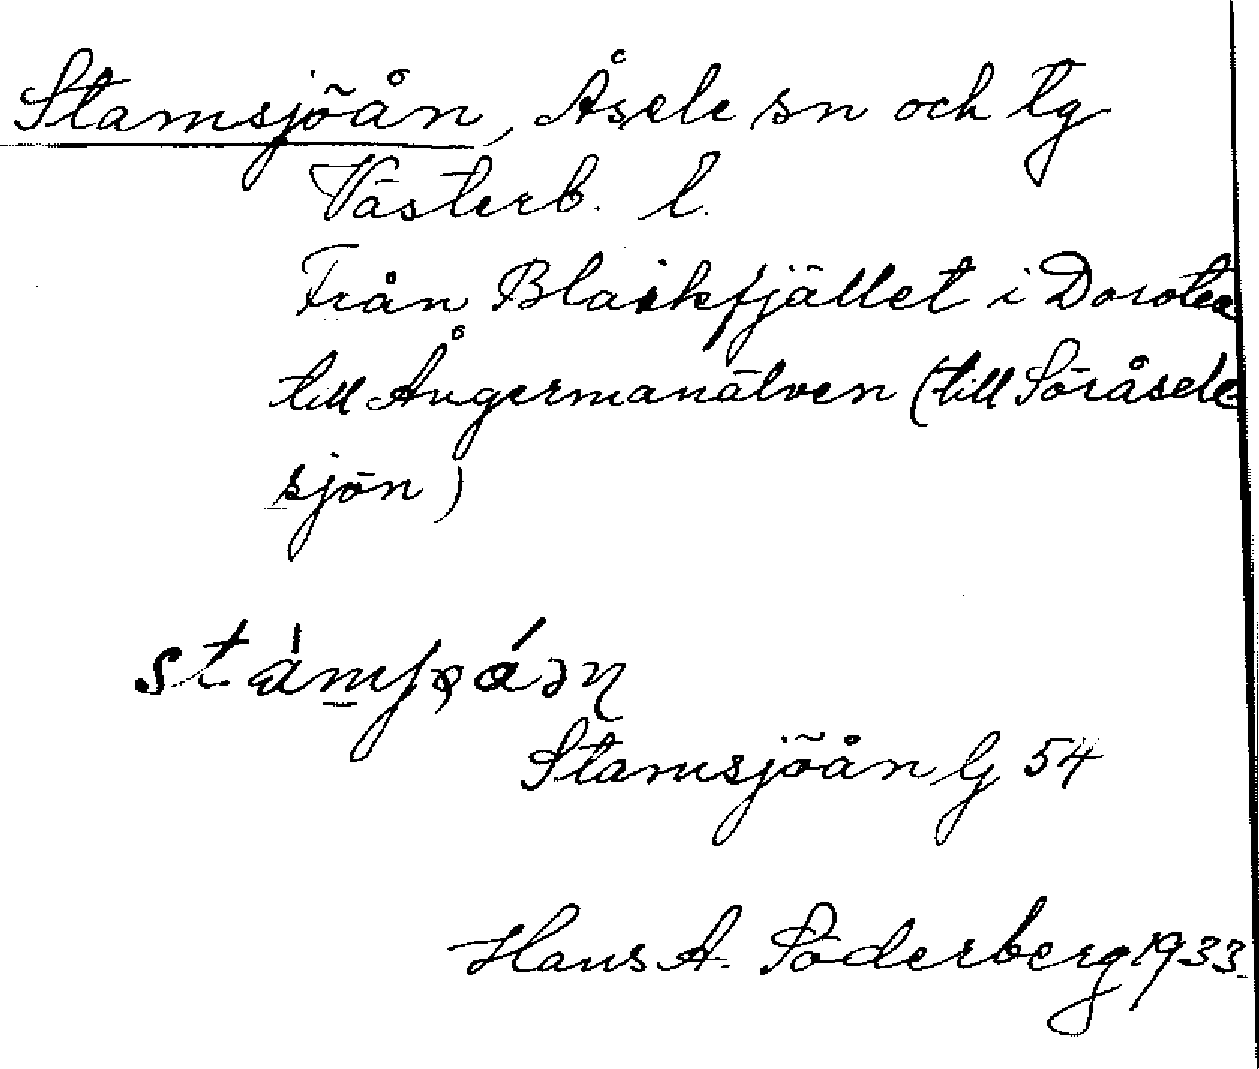 Stamsjöån, Åsele sn och lg
Västerb. l.
Från Blaikfjället i Dorotea
till Ångermanälven (till Söråsele
sjön)
Stamsjöån G 54
Hans A. Söderberg 1933